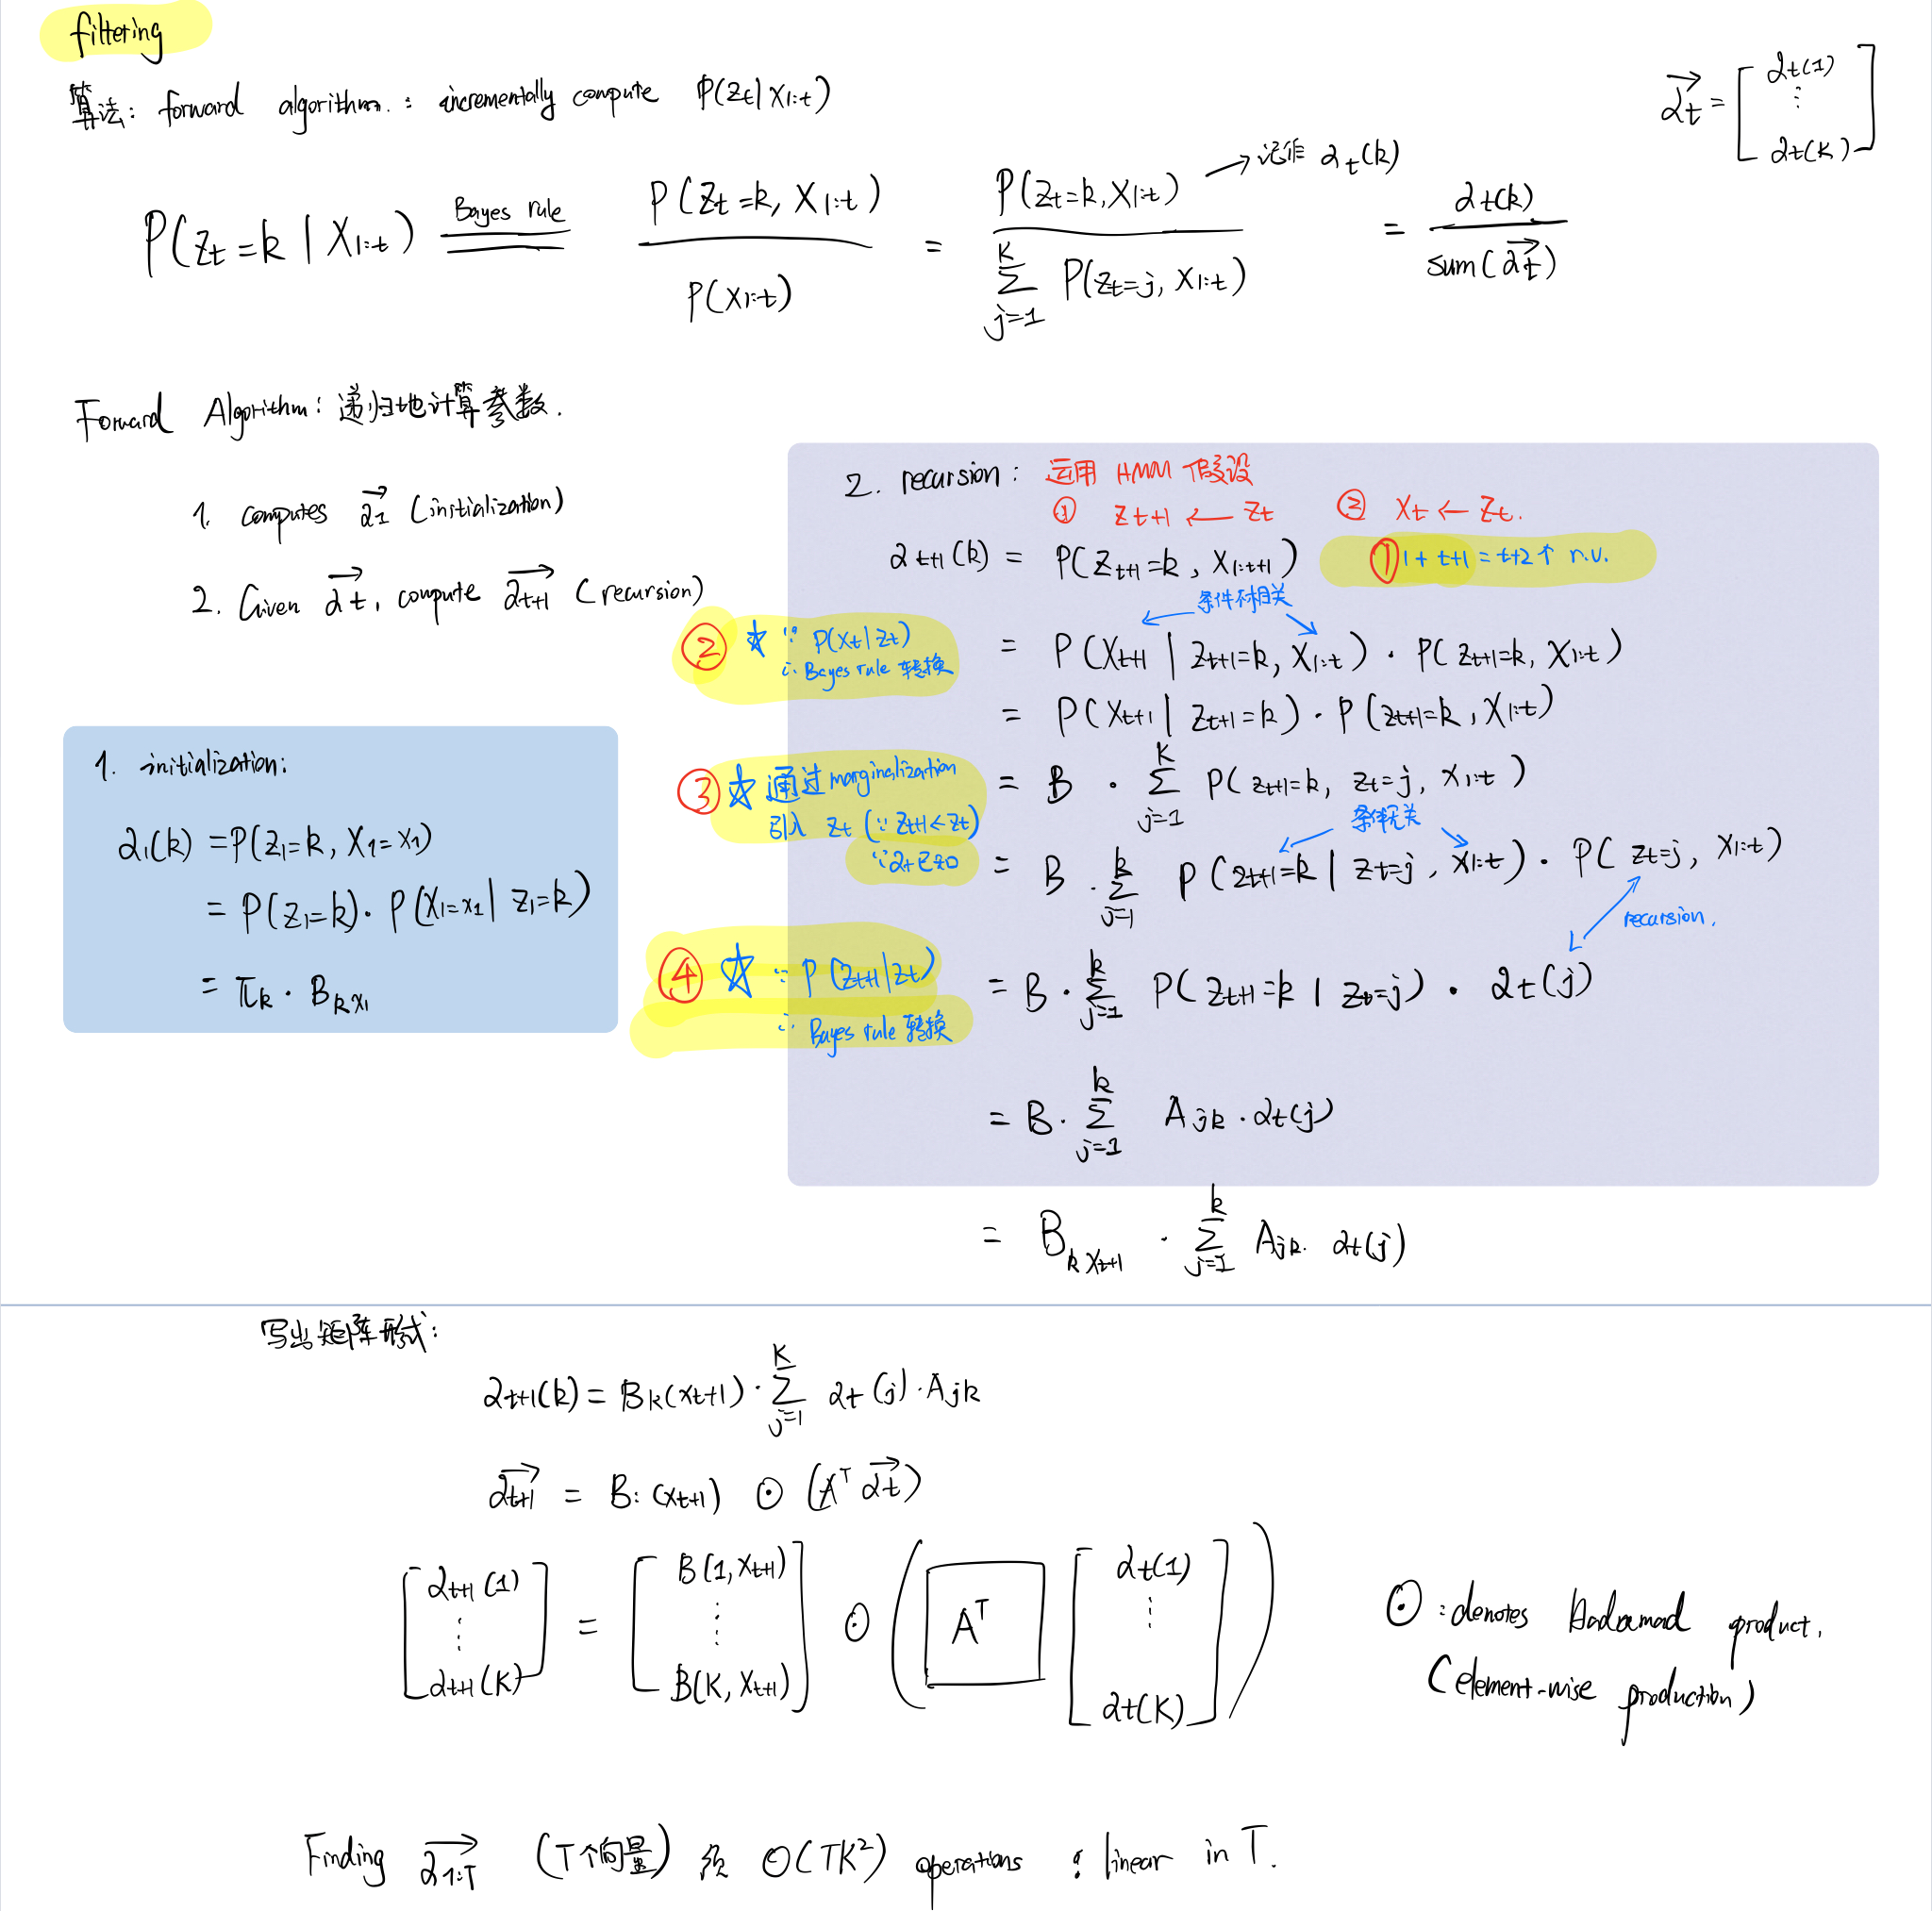 filtering
算法: forward algorithm.: incrementally compute P(Zt|X1:t)
P(Zt=k | X1:t) Bayes rule = P(Zt=k, X1:t) / P(X1:t) = P(Zt=k, X1:t) / Σ_{j=1}^{K} P(Zt=j, X1:t) = αt(k) / sum(αt→)
→ 记作 αt(k)
αt→ = [αt(1) ⋮ αt(K)]
Forward Algorithm: 递归地计算参数.
1. computes α1→ (initialization)
2. Given αt→, compute αt+1→ (recursion)
1. initialization:
α1(k) = P(Z1=k, X1=x1)
= P(Z1=k)· P(X1=x1 | Z1=k)
= πk · Bkx1
2. recursion: 运用 HMM 假设
① Zt+1 ← Zt ② Xt ← Zt.
αt+1(k) = P(Zt+1=k, X1:t+1) ① 1+t+1=t+2个 r.v.
条件不相关
② ☆ ∵ P(Xt|Zt)
∴ Bayes rule 转换
= P(Xt+1 | Zt+1=k, X1:t) · P(Zt+1=k, X1:t)
= P(Xt+1 | Zt+1=k) · P(Zt+1=k, X1:t)
③ ☆ 通过 marginalization
引入 Zt (∵ Zt+1←Zt)
∵ αt已知
= B · Σ_{j=1}^{K} P(Zt+1=k, Zt=j, X1:t)
条件无关
= B · Σ_{j=1}^{k} P(Zt+1=k | Zt=j, X1:t) · P(Zt=j, X1:t)
recursion.
④ ☆ ∵ P(Zt+1|Zt)
∴ Bayes rule 转换
= B · Σ_{j=1}^{k} P(Zt+1=k | Zt=j) · αt(j)
= B · Σ_{j=1}^{k} Ajk · αt(j)
= BkXt+1 · Σ_{j=1}^{k} Ajk · αt(j)
写出矩阵形式:
αt+1(k) = Bk(Xt+1) · Σ_{j=1}^{K} αt(j) · Ajk
αt+1→ = B:(Xt+1) ⊙ (A^T αt→)
[αt+1(1) ⋮ αt+1(K)] = [B(1,Xt+1) ⋮ B(K,Xt+1)] ⊙ (A^T [αt(1) ⋮ αt(K)])
⊙ : denotes Hadamad product.
(element-wise production)
Finding α1:T→ (T个向量) 须 O(TK²) operations : linear in T.